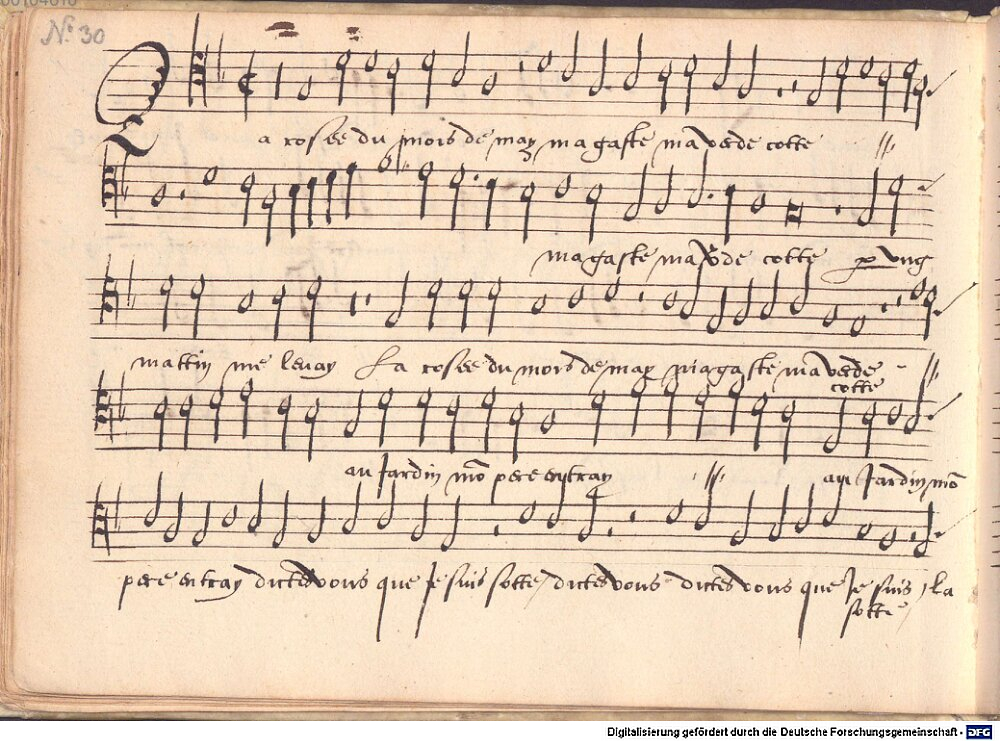 00104010
No. 30
La rosee du mois de may ma gaste ma verde cotte //
ma gaste ma vde cotte p ung
mattin me levay La rosee du mois de may ma gaste ma verde - //
cotte
au Jardin mō pere entray // au Jardin mō
pere entray dictes vous que Je suis sotte / dictes vous dictes vous que Je suis / la
sotte
Digitalisierung gefördert durch die Deutsche Forschungsgemeinschaft - DFG